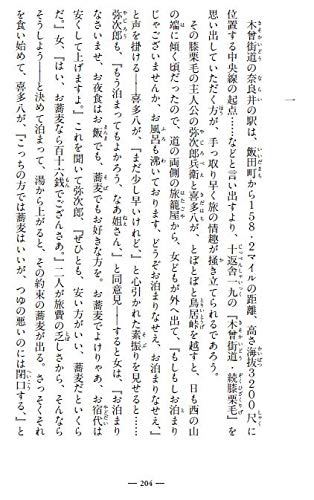 一
木曾街道の奈良井の駅は、飯田町から１５８・２マイルの距離、高さ海抜３２００尺に
位置する中央線の起点……などと言い出すより、十返舎一九の『木曾街道・続膝栗毛』を
思い出していただく方が、手っ取り早く旅の情趣が掻き立てられるであろう。
その膝栗毛の主人公の弥次郎兵衛と喜多八が、とぼとぼと鳥居峠を越すと、日も西の山
の端に傾く頃だったので、道の両側の旅籠屋から、女どもが外へ出て、「もしもしお泊まり
じゃございませんか、お風呂も沸いております、どうぞお泊まりなせえ、お泊まりなせえ」
と声を掛ける――喜多八が、「まだ少し早いけれど、」と心引かれた素振りを見せると……
弥次郎も、「もう泊まってもよかろう、なあ姐さん、」と同意見――すると女は、「お泊まり
なさいませ、お夜食はお飯でも、蕎麦でもお好きな方を。お蕎麦でよけりゃあ、お宿代は
安くして上げますよ。」これを聞いて弥次郎、「ぜひとも、安い方がいい、蕎麦だといくら
だ。」女、「はい、お蕎麦なら百十六銭でござんさあ。」二人が旅費の乏しさから、そんなら
そうしよう――と決めて泊まって、湯から上がると、その約束の蕎麦が出る。さっそくそれ
を食い始めて、喜多八が、「こっちの方では蕎麦はいいが、つゆの悪いのには閉口する。」と
― 204 ―